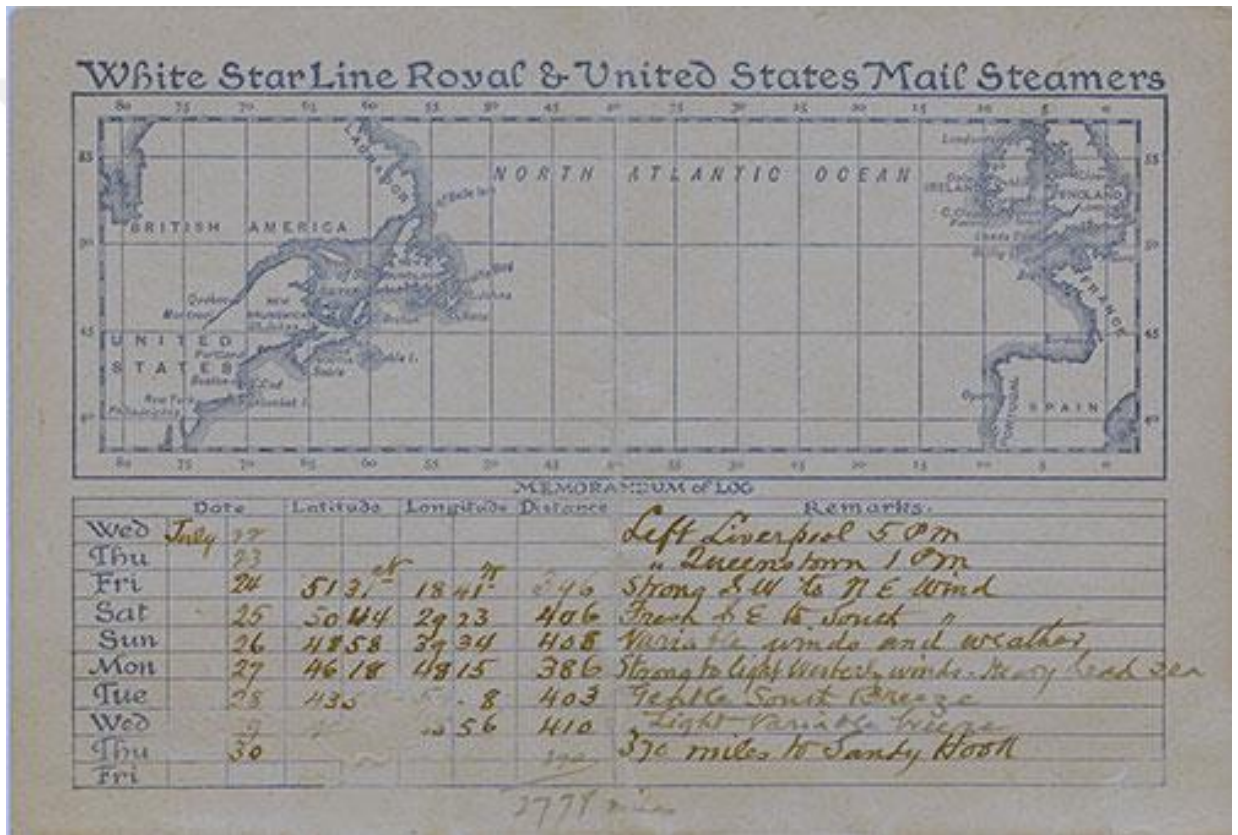 White Star Line Royal & United States Mail Steamers
80 75 70 65 60 55 50 45 40 35 30 25 20 15 10 5 0
LABRADOR
55 NORTH ATLANTIC OCEAN 55
IRELAND ENGLAND
BRITISH AMERICA
50 50
FRANCE
Quebec
Montreal NEW BRUNSWICK
45 45
UNITED STATES
Portland
Boston
New York
Philadelphia
40 PORTUGAL SPAIN 40
80 75 70 65 60 55 50 45 40 35 30 25 20 15 10 5 0
MEMORANDUM of LOG
Date Latitude Longitude Distance Remarks.
Wed July 22 Left Liverpool 5 PM
Thu 23 " Queenstown 1 PM
Fri 24 51 31 N 18 41 W Strong S W to N E Wind
Sat 25 50 44 29 23 406 Fresh S E to South "
Sun 26 48 58 39 34 408 Variable winds and weather
Mon 27 46 18 48 15 386 Strong to light Westerly winds. Heavy head sea
Tue 28 8 403 Gentle South Breeze
Wed 56 410 Light Variable breeze
Thu 30 370 miles to Sandy Hook
Fri